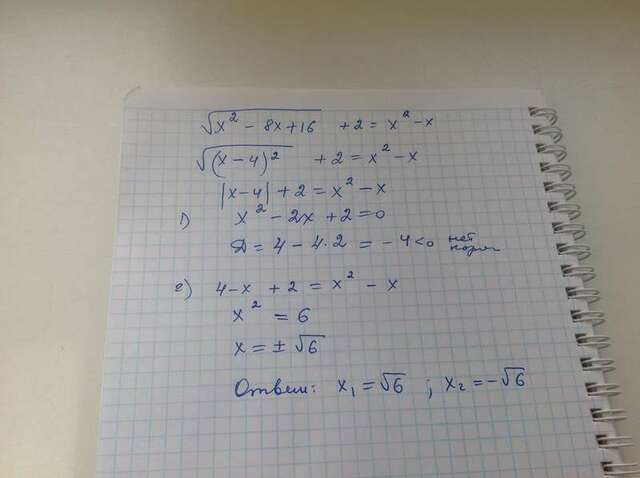 √x² - 8x+16 +2= x² -x
√(x-4)² +2=x²-x
|x-4|+2=x²-x
1) x²-2x+2=0
Д=4-4·2 = -4<0 нет корн
2) 4-x +2 = x² -x
x² = 6
x=±√6
Ответ: x₁=√6 ; x₂=-√6